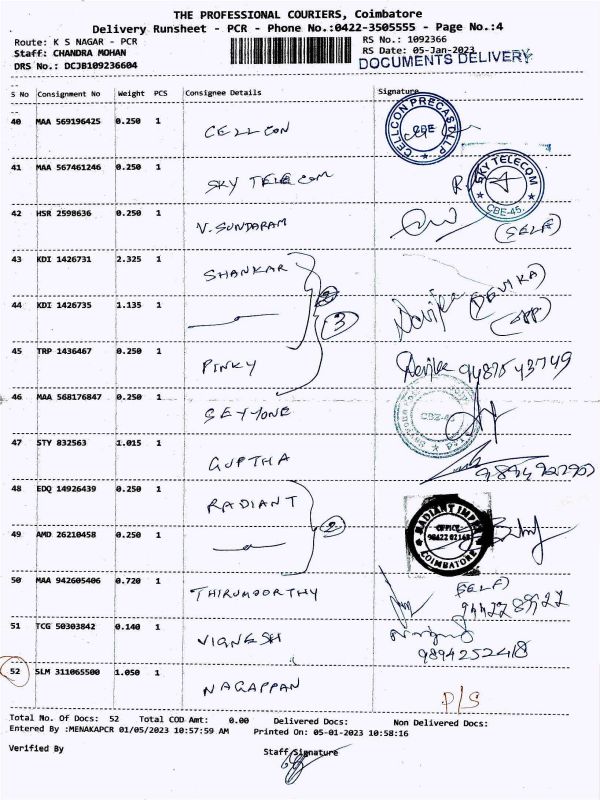 THE PROFESSIONAL COURIERS, Coimbatore
Delivery Runsheet - PCR - Phone No.:0422-3505555 - Page No.:4
Route: K S NAGAR - PCR RS No.: 1092366
Staff: CHANDRA MOHAN RS Date: 05-Jan-2023
DRS No.: DCJB109236604 DOCUMENTS DELIVERY
S No Consignment No Weight PCS Consignee Details Signature
40 MAA 569196425 0.250 1 CELLCON
CELLCON PRECAST LLP CBE
41 MAA 567461246 0.250 1 SKY TELECOM
SKY TELECOM CBE-45.
42 HSR 2598636 0.250 1 V. SUNDARAM (SELF)
43 KDI 1426731 2.325 1 SHANKAR
44 KDI 1426735 1.135 1 3 Devika (DEVIKA)
(APP)
45 TRP 1436467 0.250 1 PINKY Devika 9487543749
46 MAA 568176847 0.250 1 SEYYONE
47 STY 832563 1.015 1 GUPTHA
48 EDQ 14926439 0.250 1 RADIANT
RADIANT IMPEX OFFICE 98422 02168 COIMBATORE
49 AMD 26210458 0.250 1 2
50 MAA 942605406 0.720 1 THIRUMOORTHY (SELF)
51 TCG 50303842 0.140 1 VIGNESH
9894252418
52 SLM 311065500 1.050 1 NAGAPPAN P/S
Total No. Of Docs: 52 Total COD Amt: 0.00 Delivered Docs: Non Delivered Docs:
Entered By :MENAKAPCR 01/05/2023 10:57:59 AM Printed On: 05-01-2023 10:58:16
Verified By Staff Signature